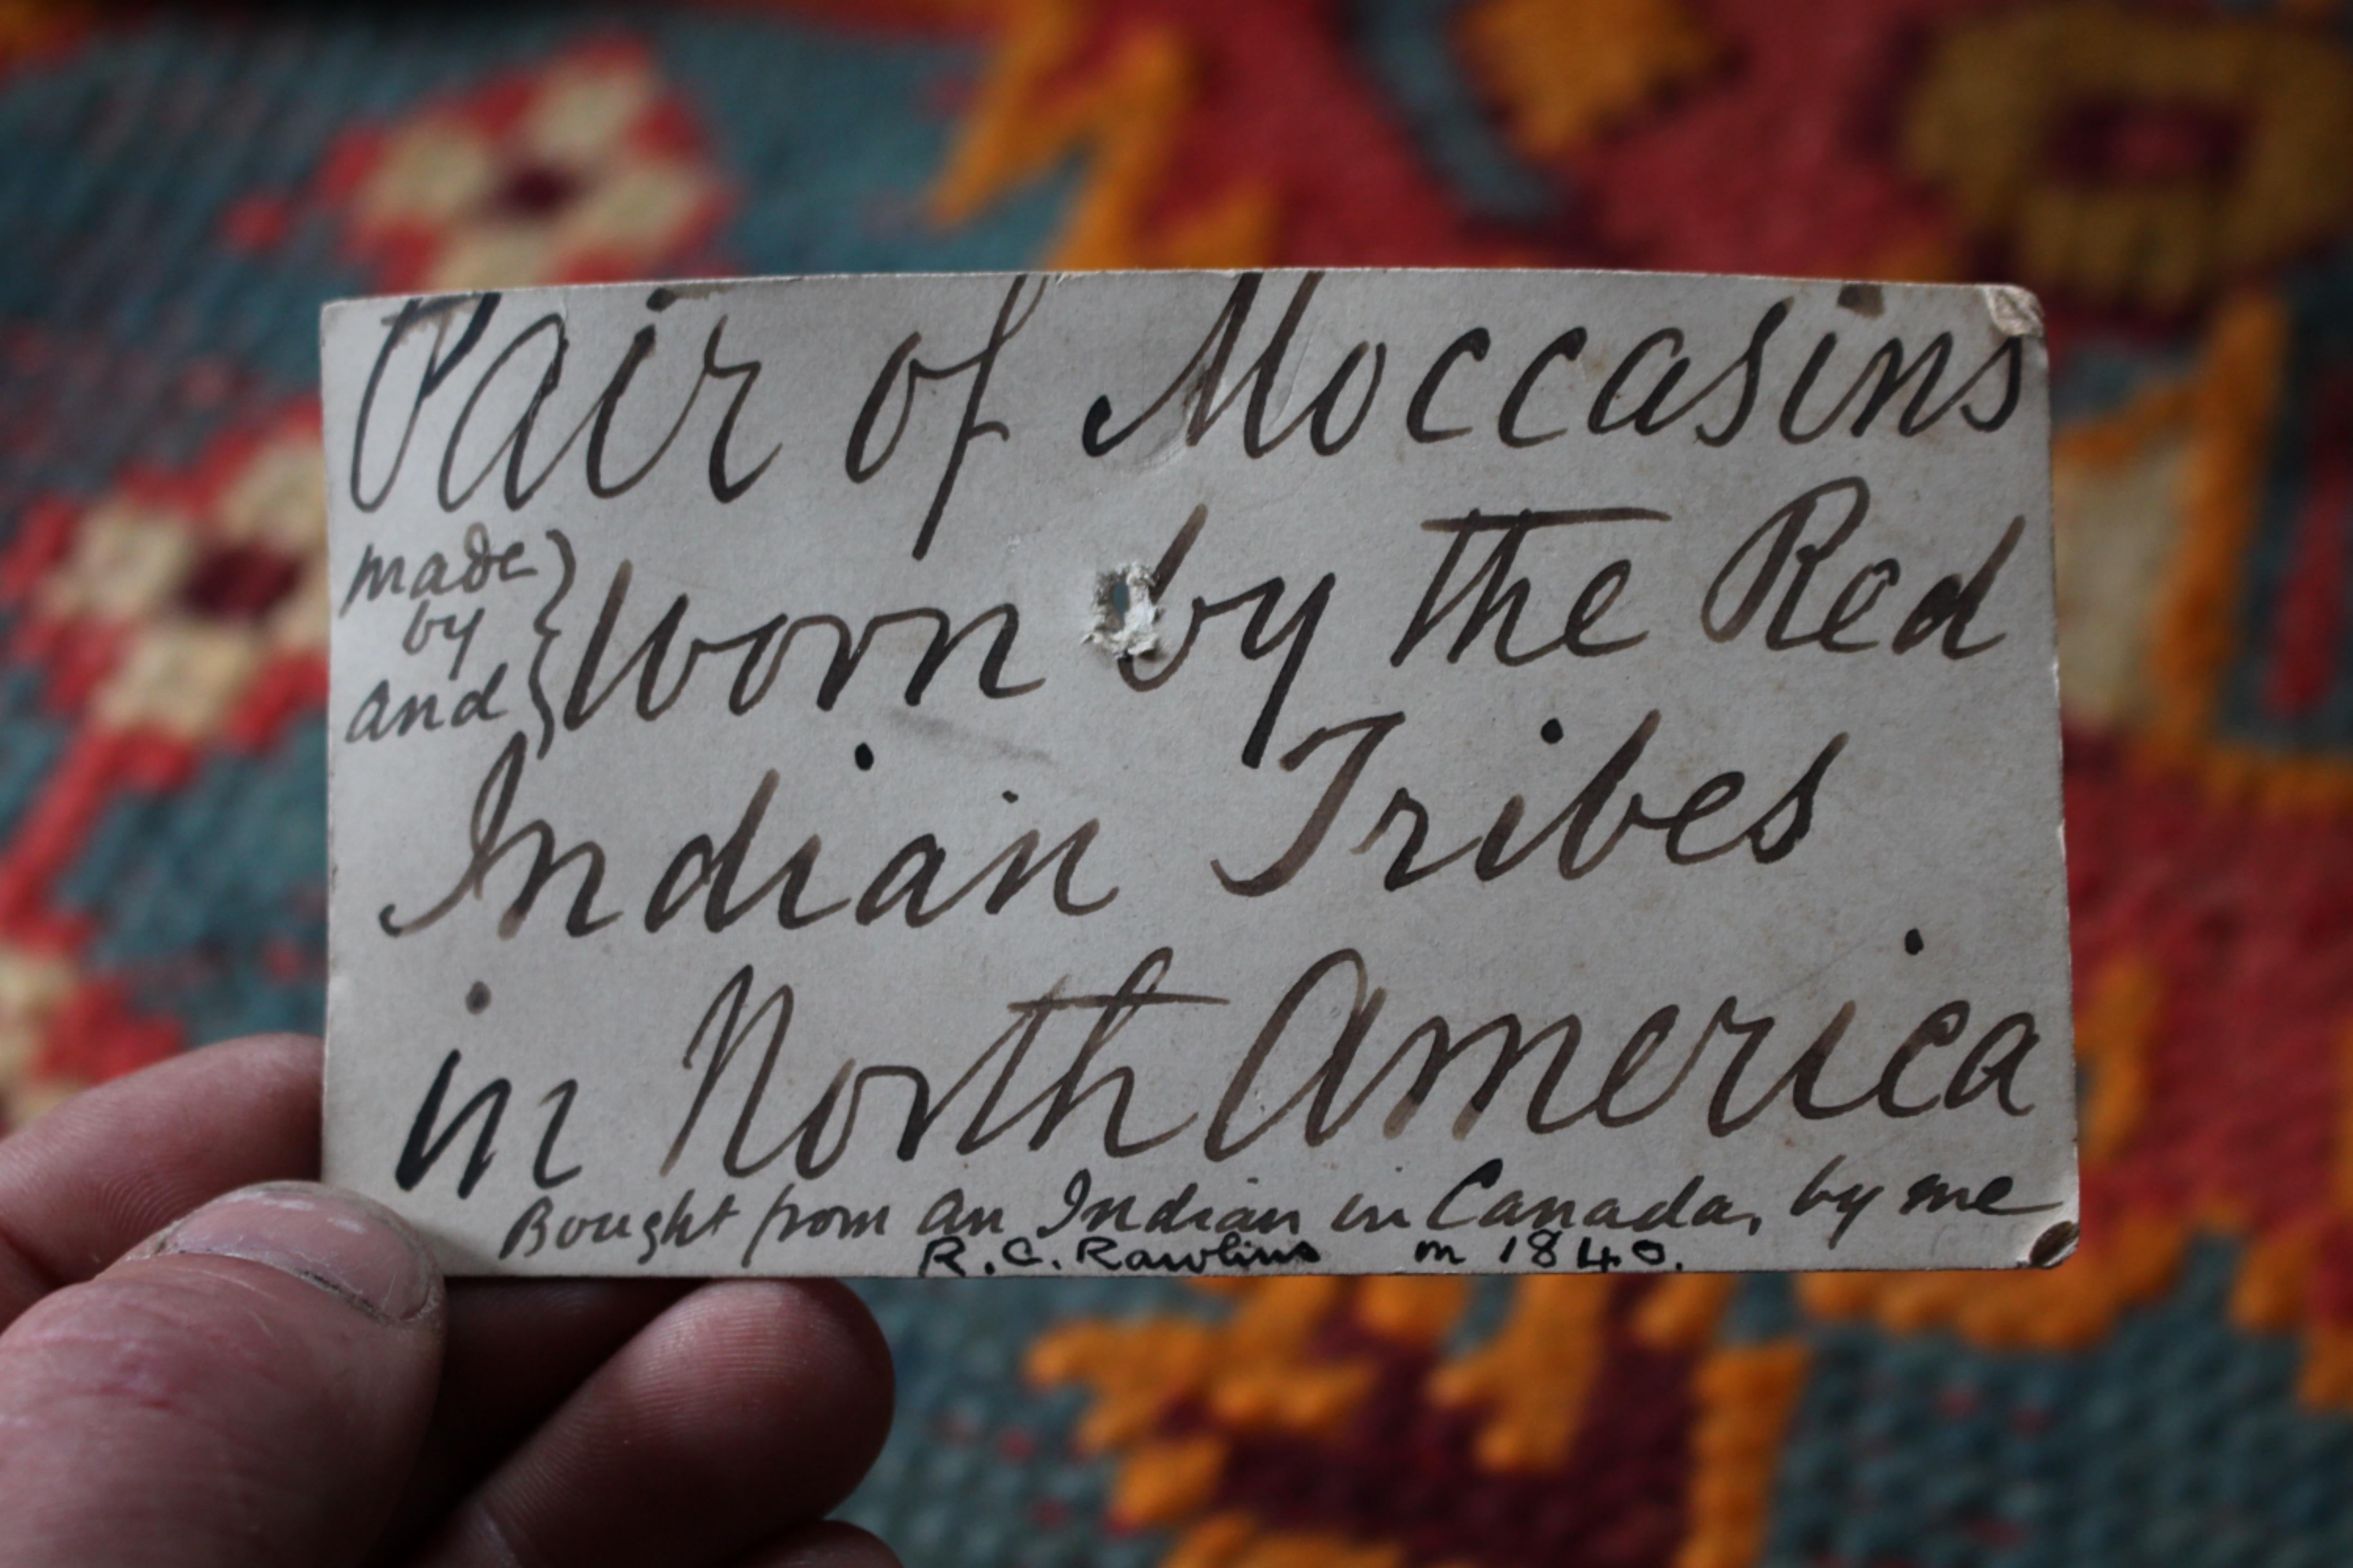 Pair of Moccasins
made
by
and } Worn by the Red
Indian Tribes
in North America
Bought from an Indian in Canada, by me
R.C. Rawlins in 1840.